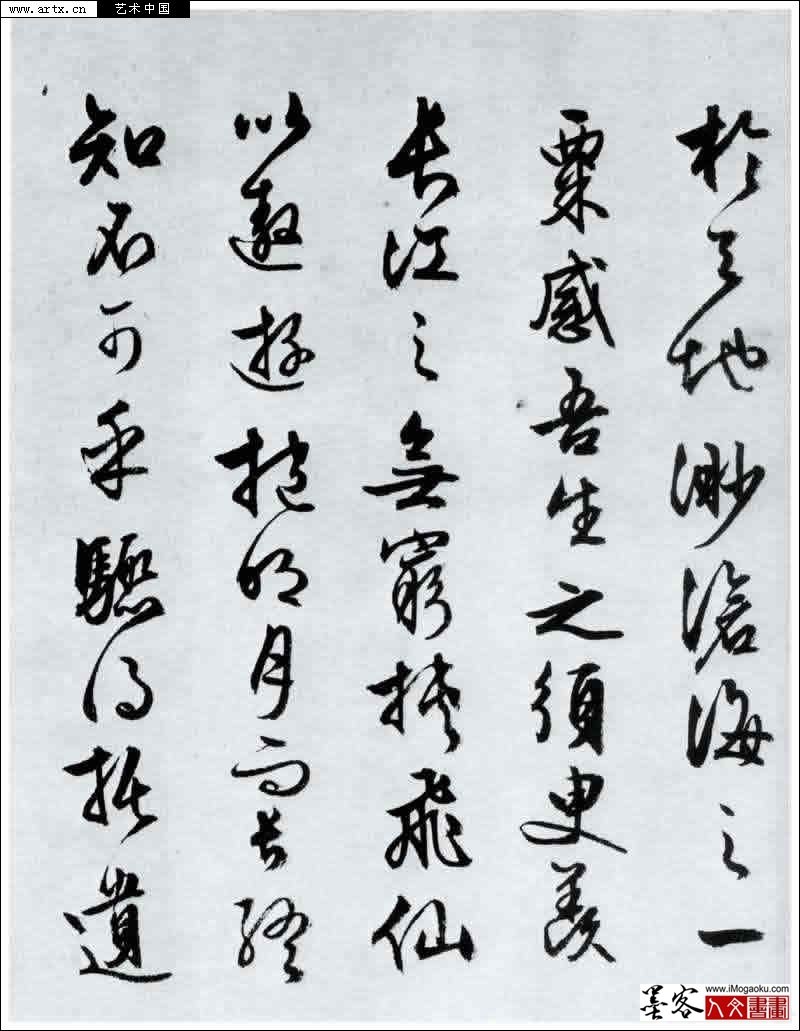 www.artx.cn 艺术中国
於天地渺滄海之一
粟感吾生之須臾羨
長江之無窮挾飛仙
以遨遊抱明月而長終
知不可乎驟得托遺
墨客
www.iMogaoku.com
人文書畫